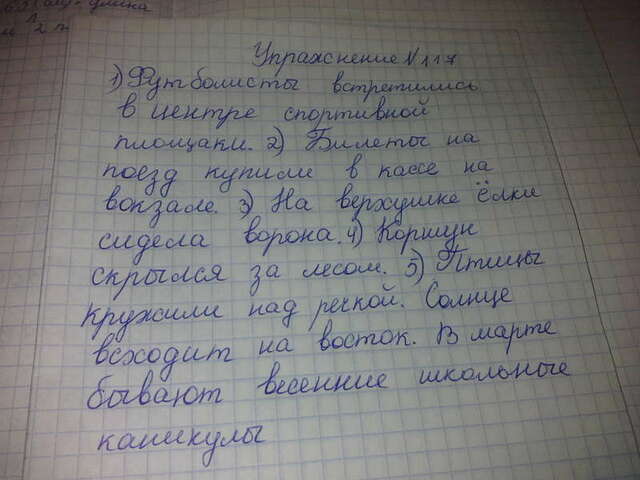 длина
2
Упражнение №117
1) Футболисты встретились
в центре спортивной
площаки. 2) Билеты на
поезд купили в кассе на
вокзале. 3) На верхушке ёлки
сидела ворона. 4) Коршун
скрылся за лесом. 5) Птицы
кружили над речкой. Солнце
всходит на восток. В марте
бывают весенние школьные
каникулы